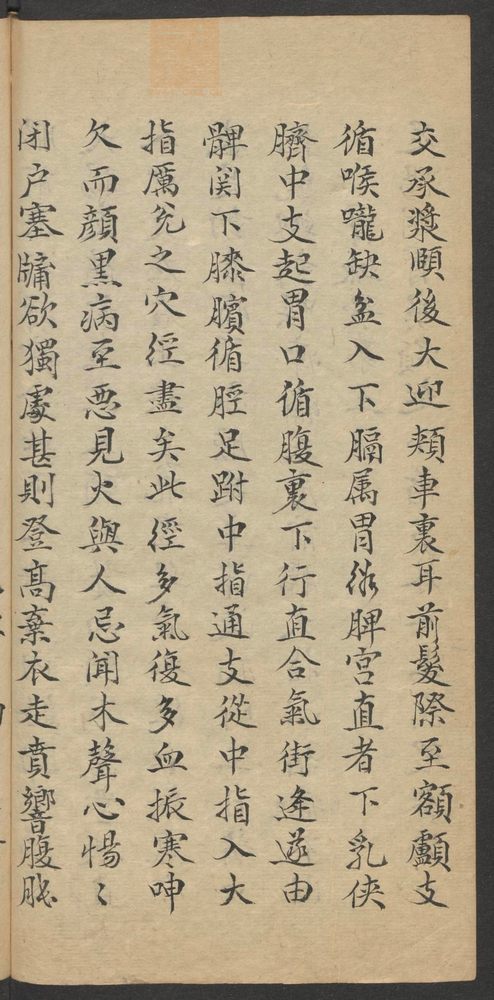 交承漿頤後大迎頰車裏耳前髮際至額顱支
循喉嚨缺盆入下膈属胃絡脾宫直者下乳俠
臍中支起胃口循腹裏下行直合氣街逢遂由
髀関下膝臏循脛足跗中指通支從中指入大
指厲兊之穴徑盡矣此徑多氣復多血振寒呻
欠而顔黒病至悪見火與人忌聞木聲心惕〻
闭户塞牗欲獨處甚則登髙棄衣走賁響腹脹